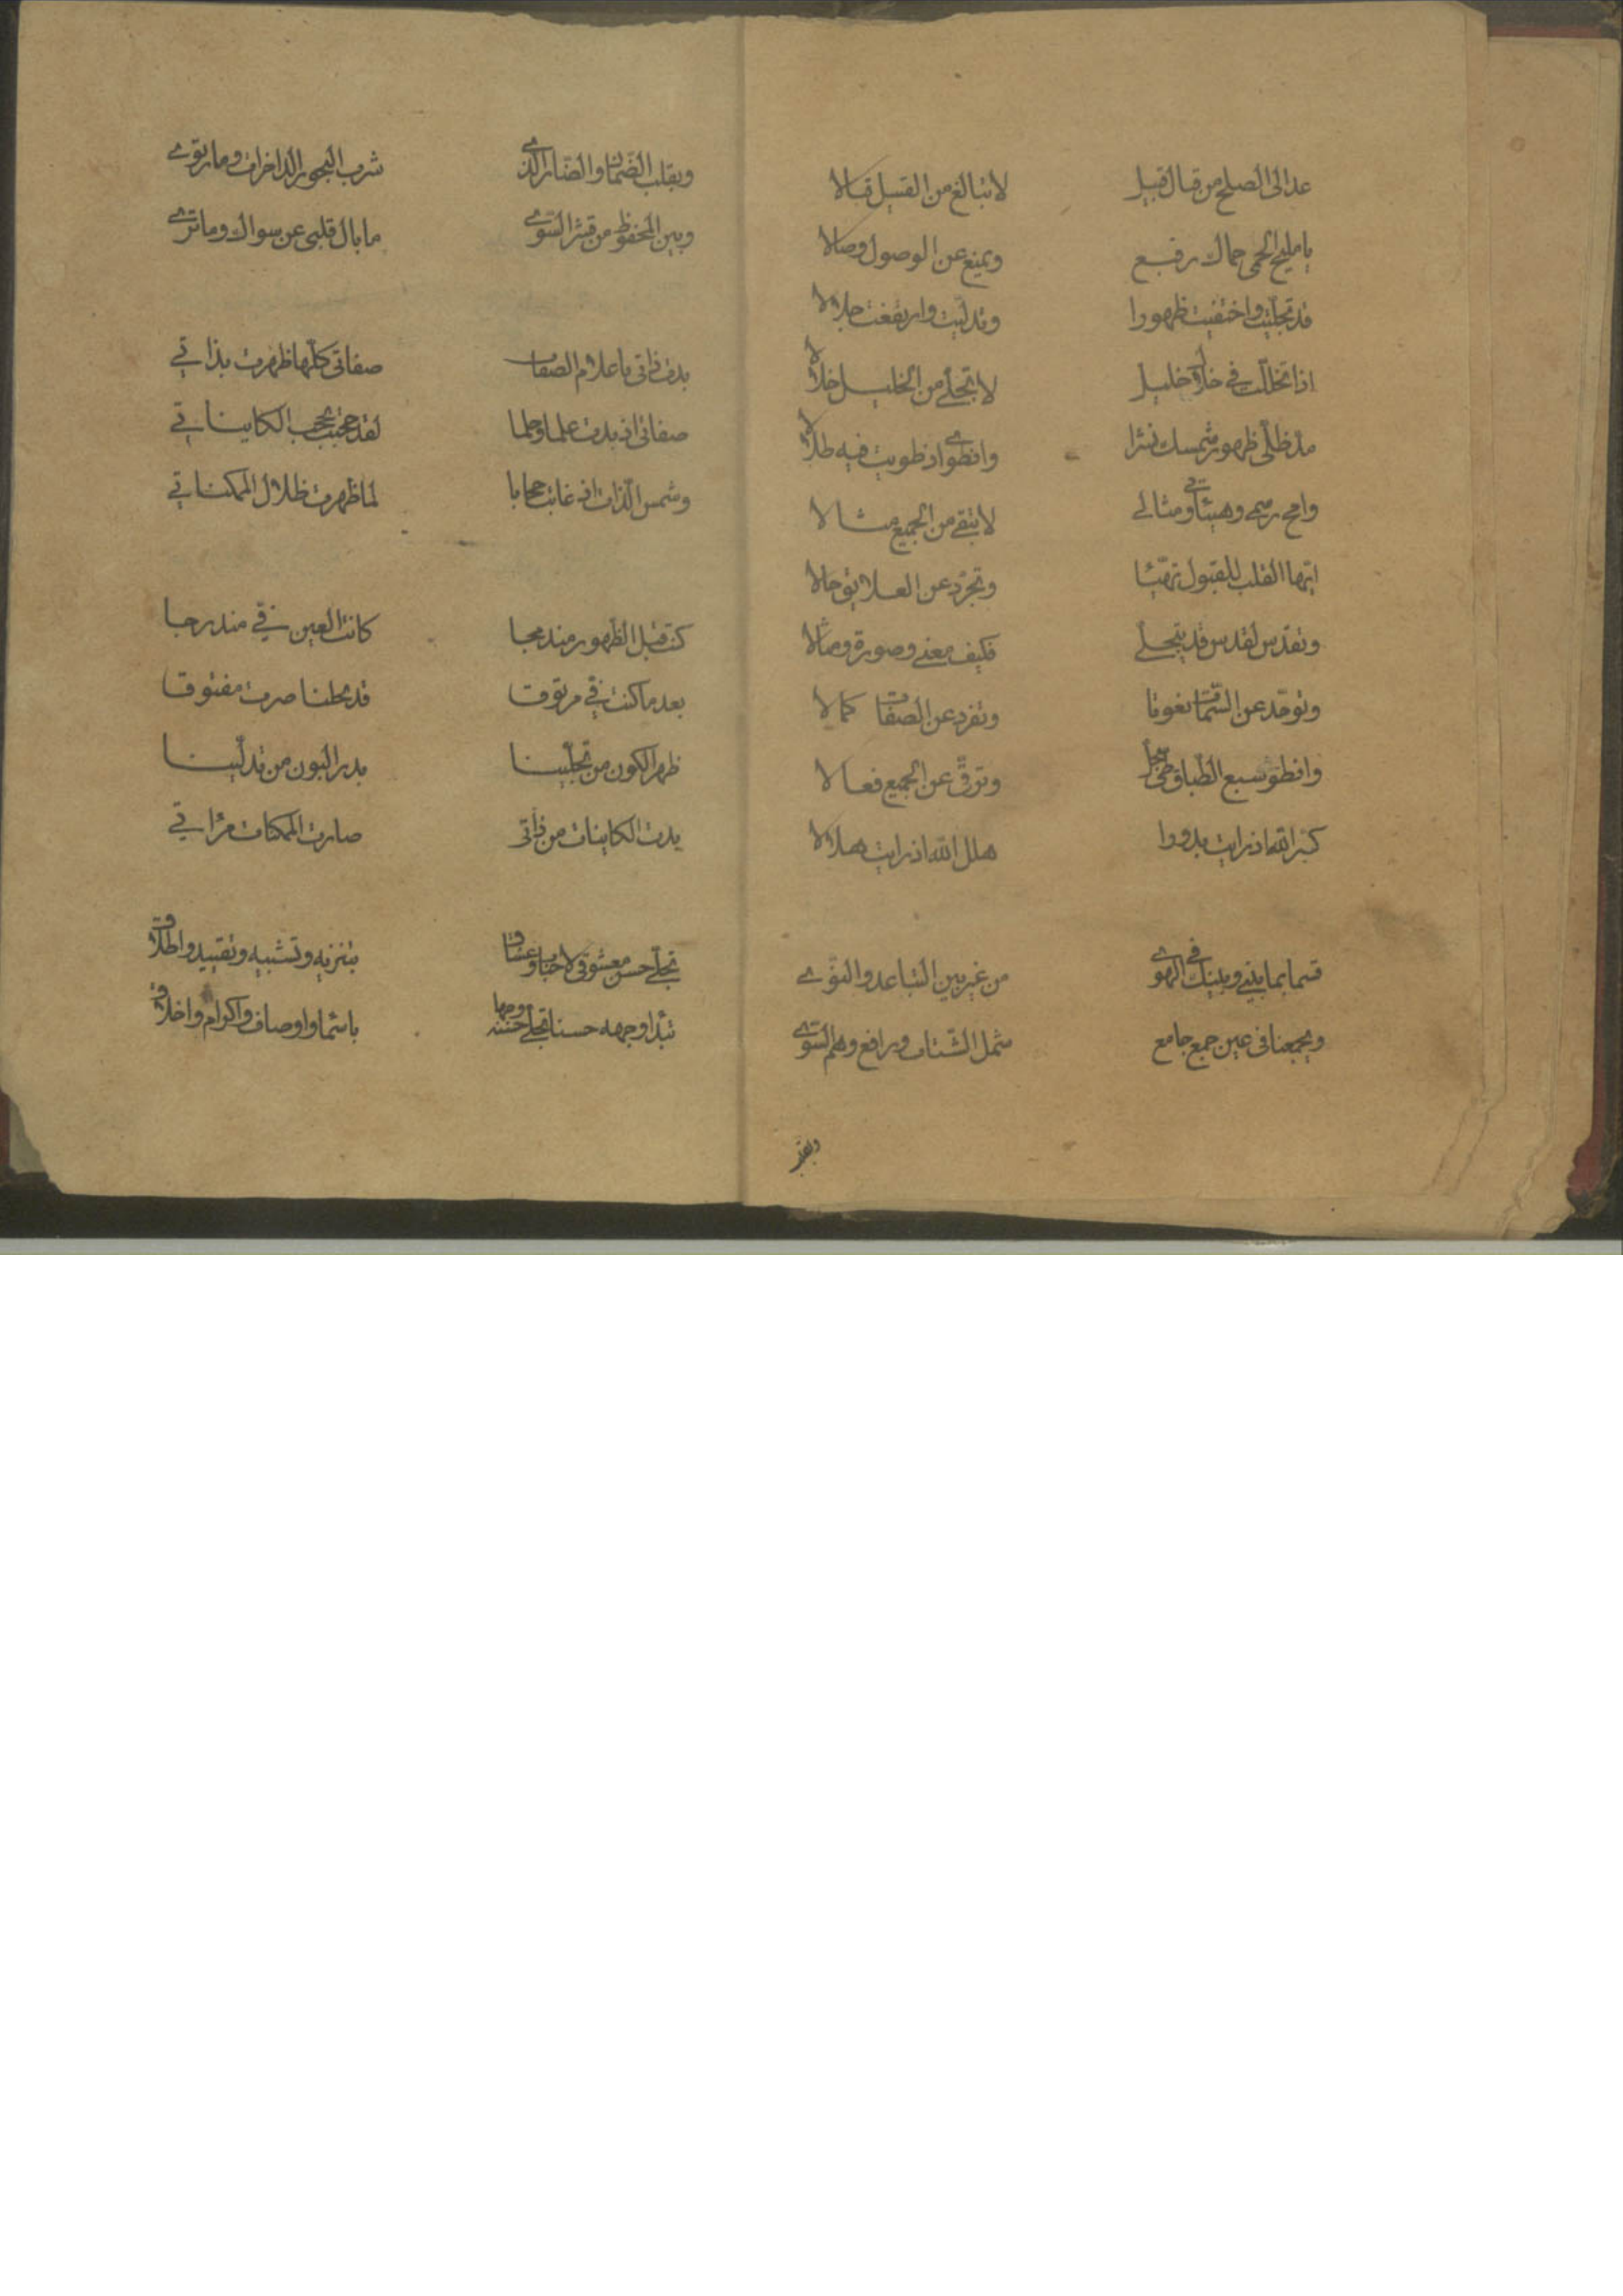 عد الى الصلح من قال قيل لا تبالغ من القيل قالا
يا مليح الحمى حماك رفيع ويمنع عن الوصول وصالا
قد تجليت واختفيت ظهورا وتدليت وارتفعت جلالا
اذا تخللت في خلال خليل لا تجلى من الخليل خلالا
مد ظلى ظهور شمسك نشرا وانطوى اذ طويت فيه طلالا
وامح رسمى وهيئاتى ومثالى لا تبقى من الجميع مثالا
ايها القلب للقبول تهيئا وتجرد عن العلايق حالا
وتقدس لقدس قد يتجلى فكيف معنى وصورة ومثالا
وتوحد عن السمات نعوتا وتفرد عن الصفات كمالا
وانطو سبع الطباق وترق عن الجميع فعالا
كبر الله اذ رايت بدورا هلل الله اذ رايت هلالا
قسما بما بينى وبينك فى الهوى من غير بين التباعد والنوى
ويجمعنا فى عين جمع جامع شمل الشتات ورافع وهم السوى
وبقلب
وبقلب الضمان والضار الذى شرب البحور الذاخرات وما ارتوى
وبين المحفوظ من قشر السوى ما بال قلبى عن سواك وما ترى
بدت ذاتى باعلام الصفات صفاتى كلها ظهرت بذاتي
صفاتى اذ بدت علما وحلما لقد حجبت بحجب الكايناتي
وشمس الذات اذ غابت حجابا لما ظهرت ظلال الممكناتي
كنت قبل الظهور مندمجا كانت العين في مندرجا
بعد ما كنت في مرتوقا قد بحلنا صرت مفتوقا
ظهر الكون من تجلينا بدر البون من تدلينا
بدت الكاينات من ذاتى صارت الممكنات مرآتي
تجلى حسن معشوقى لاحباب وعشاق بتنزيه وتشبيه وتقييد واطلاق
تبدا وجهه حسنا تجلى حسنه وجها باسما واوصاف واكرام واخلاق